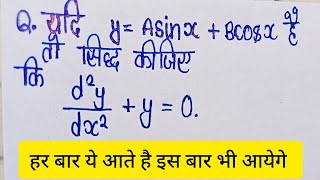 Q. यदि y = Asinx + Bcosx है
तो सिद्ध कीजिए
कि
d²y/dx² + y = 0.
हर बार ये आते है इस बार भी आयेगे